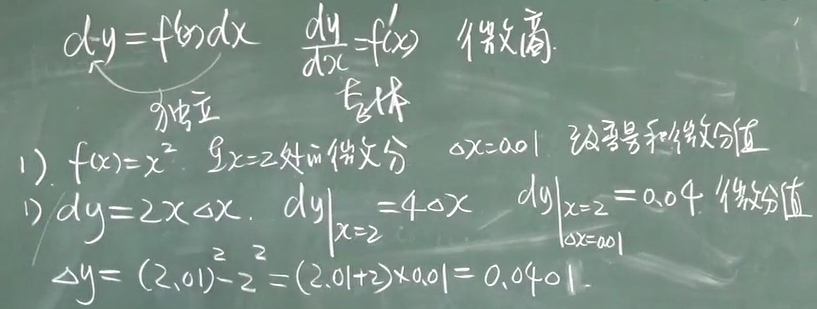 dy=f'(x)dx dy/dx=f'(x) 微商
独立 整体
1) f(x)=x² 在x=2处的微分 Δx=0.01 改变量和微分值
1) dy=2xΔx. dy|x=2 =4Δx dy|x=2 Δx=0.01 =0.04 微分值
Δy=(2.01)²-2²=(2.01+2)×0.01=0.0401.